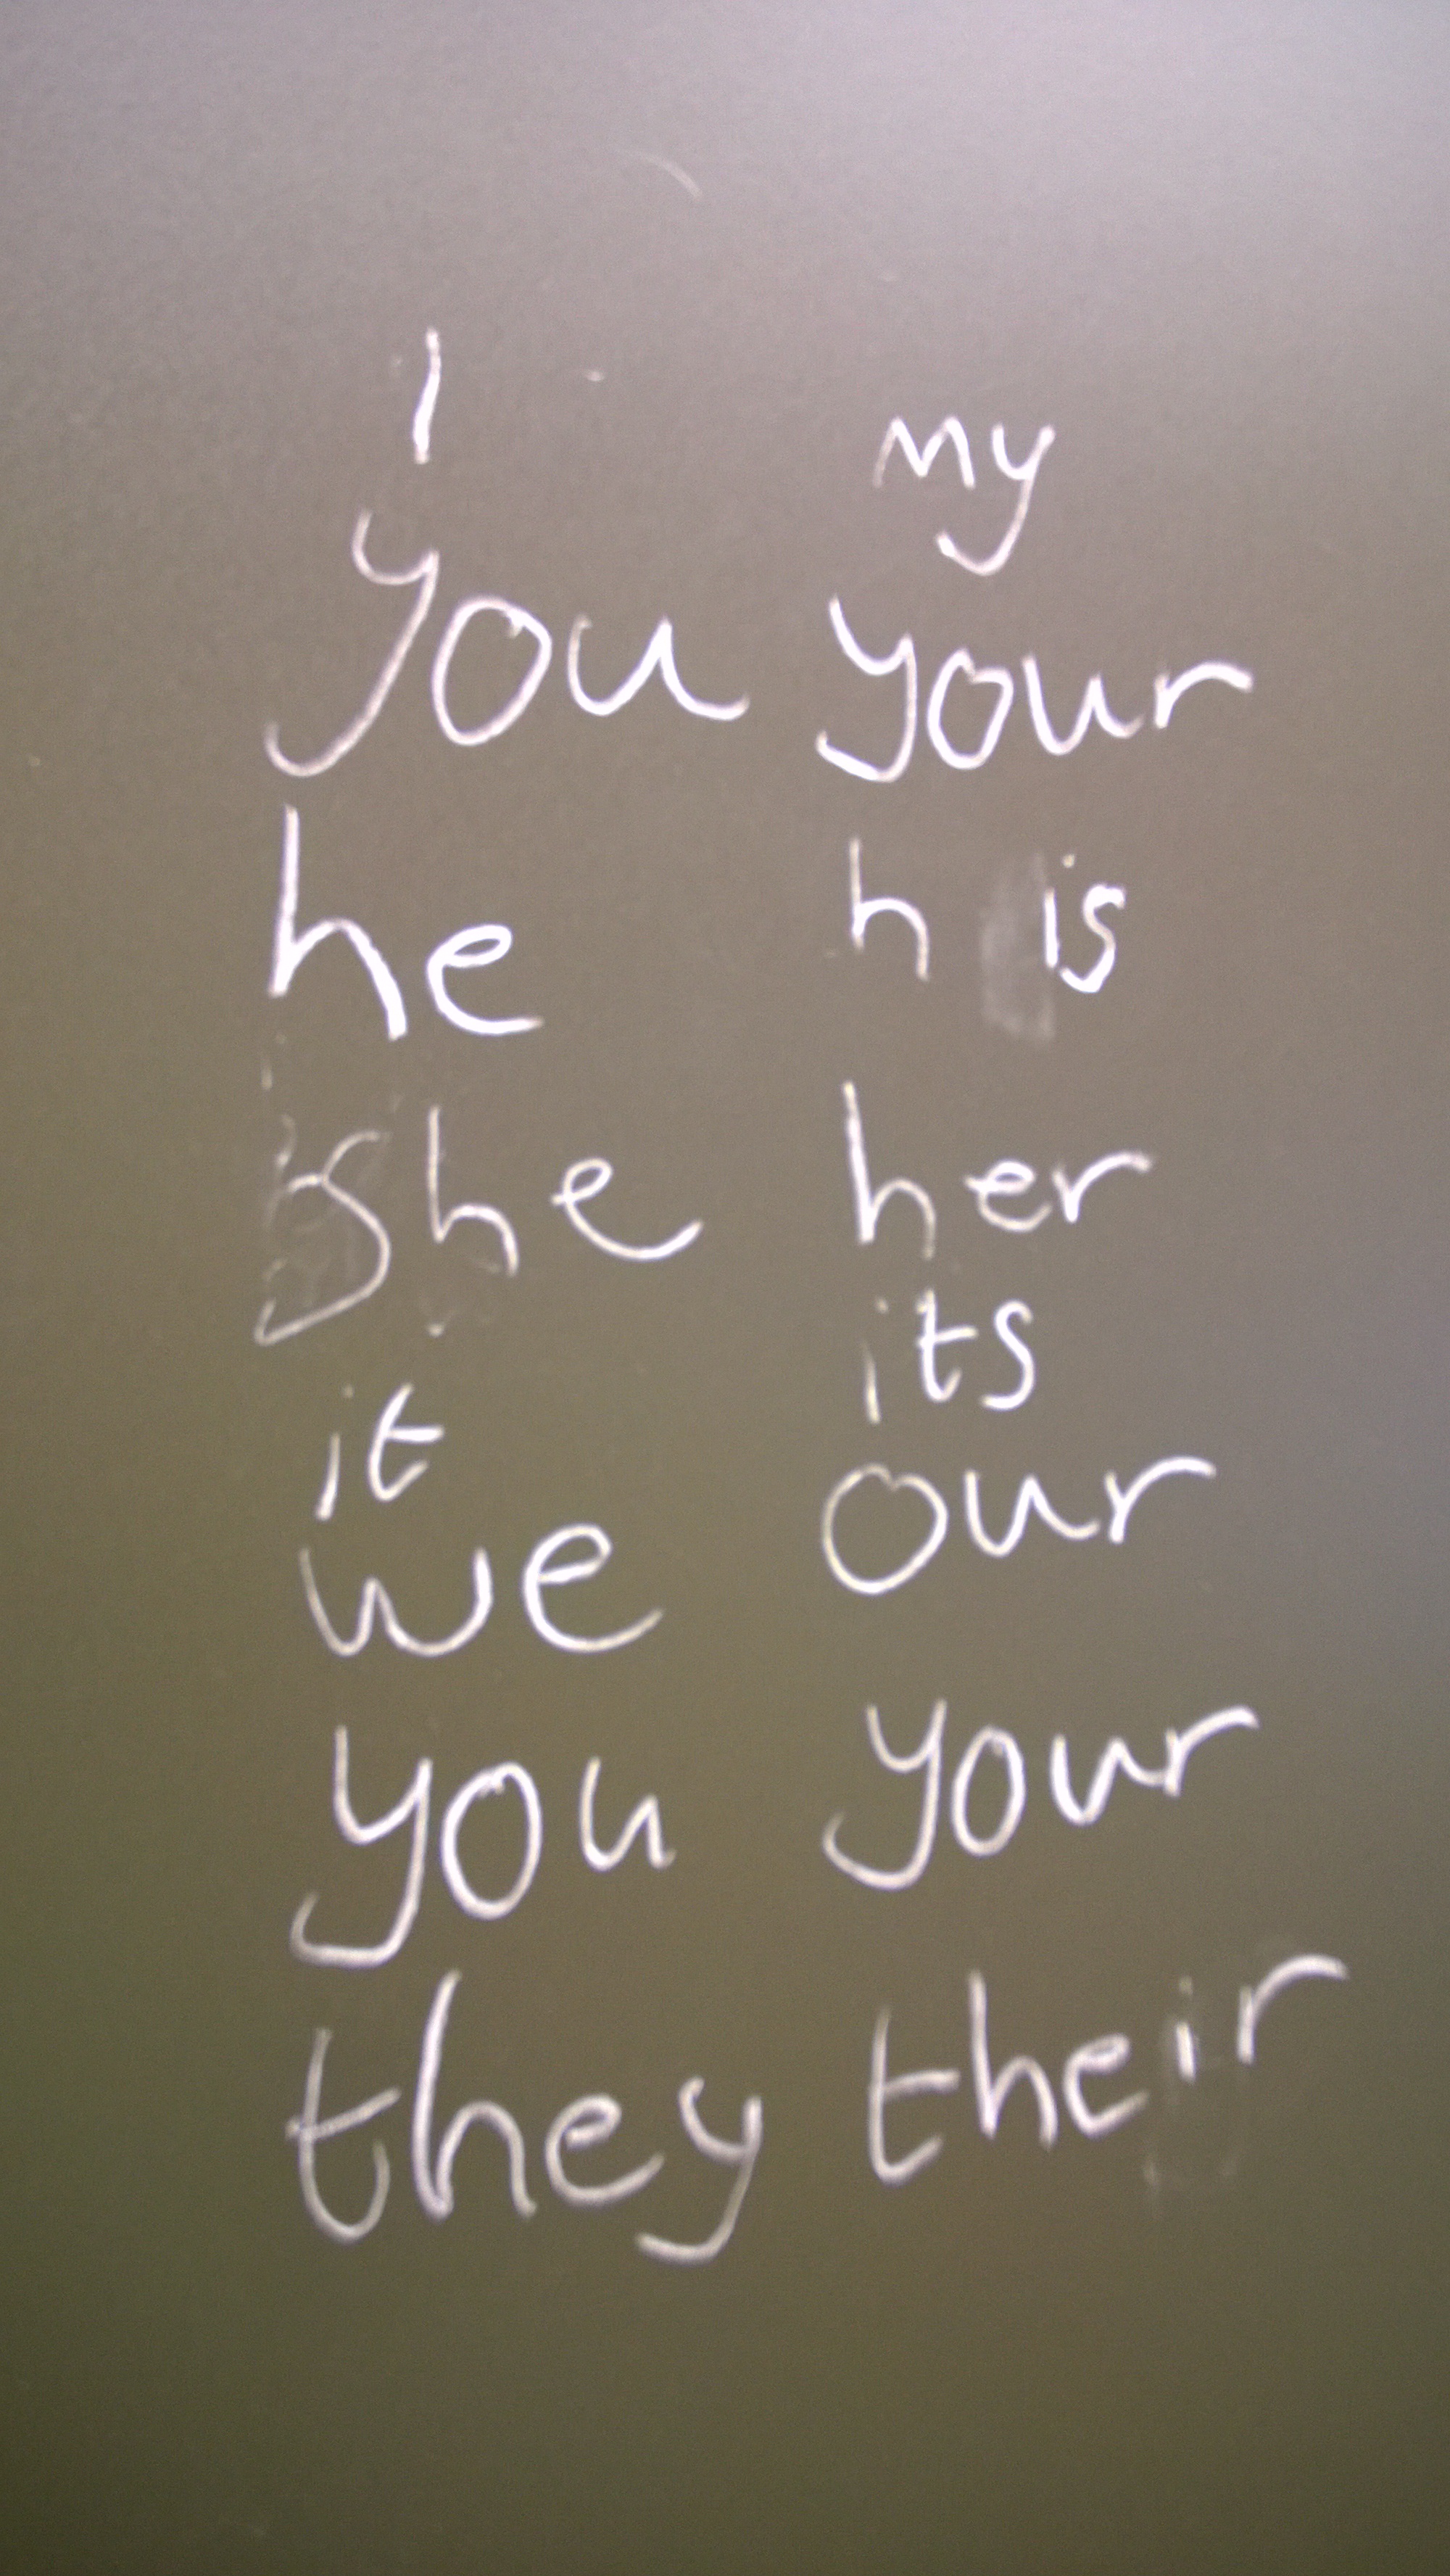 I my
you your
he his
she her
it its
we our
you your
they their